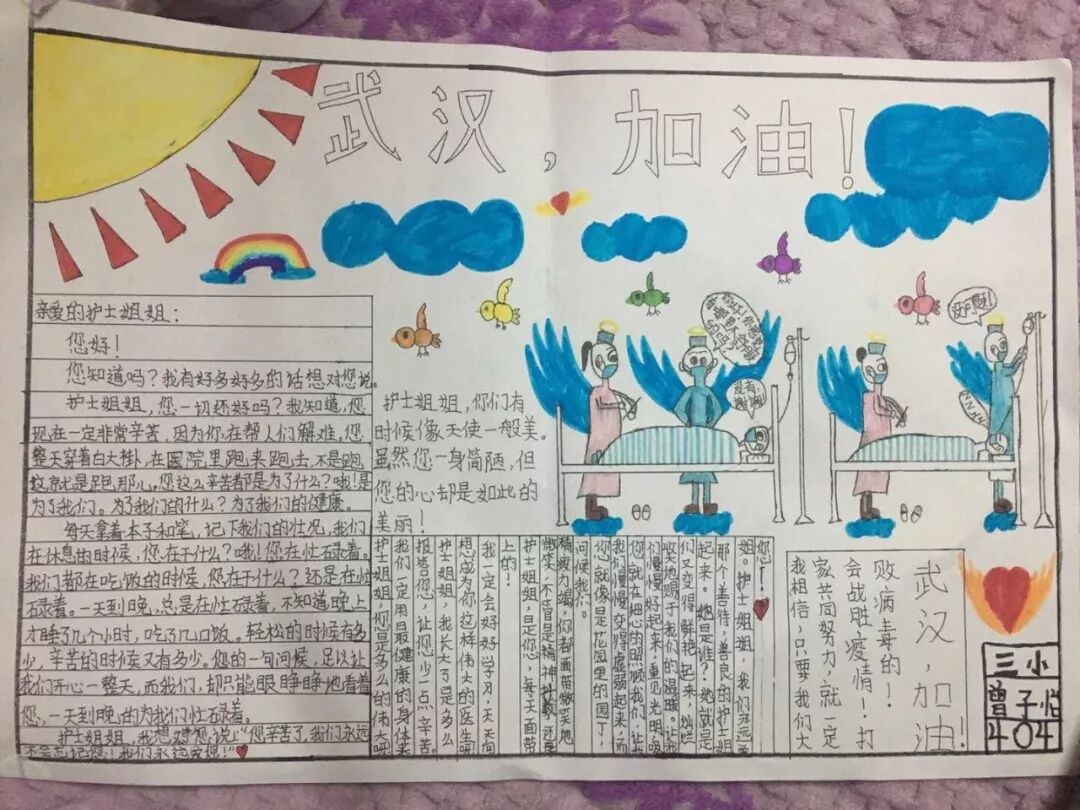 武汉，加油！
亲爱的护士姐姐：
您好！
您知道吗？我有好多好多的话想对您说。
护士姐姐，您一切还好吗？我知道，您
现在一定非常辛苦，因为你在帮人们解难，您
整天穿着白大褂，在医院里跑来跑去，不是跑
这就是跑那儿，您这么辛苦都是为了什么？哦！是
为了我们。为了我们的什么？为了我们的健康。
每天拿着本子和笔，记下我们的壮况，我们
在休息的时候，您在干什么？哦！您在忙碌着。
我们都在吃饭的时候，您在干什么？还是在忙
碌着。一天到晚，总是在忙碌着，不知道晚上
才睡了几个小时，吃了几口饭。轻松的时候有多
少，辛苦的时候又有多少。您的一句问候，足以让
我们开心一整天，而我们，却只能眼睁睁地看着
您，一天到晚的为我们忙碌着。
护士姐姐，我想对您说上“您辛苦了，我们永远
不会忘记您！我们永远爱您！”
护士姐姐，你们有
时候像天使一般美。
虽然您一身简陋，但
您的心却是如此的
美丽！
没有，谢谢
没问题！
护士姐姐，您是多么的伟大呀
我们一定用最健康的身体来
报答您，让您少一点辛苦
护士姐姐，我长大了是多么
想成为你这样伟大的医生呀
我一定会好好学习，天天向
上的！
护士姐姐，是您，每天面带
微笑，不管是精神抖擞，还是
精疲力竭，你都面带微笑地
问候我们。
您们就像是花园里的园丁，
我们慢慢变得虚弱起来，而
您就在细心的照顾我们，让我
们慢慢好起来，重见光明
地赐于我们的温暖。让我
们又变得鲜艳起来，灿烂
起来。她是谁？她就是
那个善待，善良的护士姐
姐。护士姐姐，我们永远爱
您！
我相信，只要我们大
家共同努力，就一定
会战胜疫情！打
败病毒的！
武汉，加油！
三小
曾子怡
404